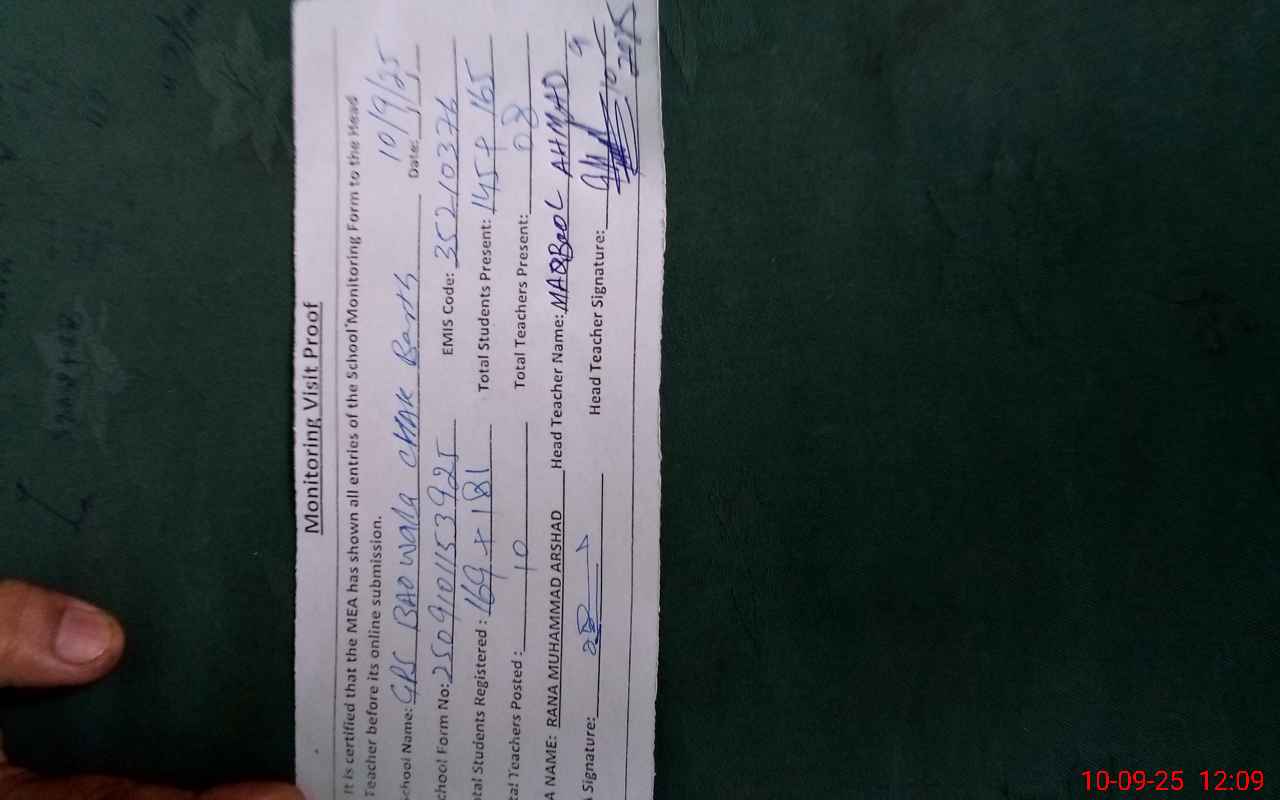 Monitoring Visit Proof
It is certified that the MEA has shown all entries of the School Monitoring Form to the Head
Teacher before its online submission.
chool Name: GPS BAO wala CHAK Date: 10/9/25
chool Form No: 2509101153925 EMIS Code: 35210376
tal Students Registered : 169 + 181 Total Students Present: 145+ 165
tal Teachers Posted : 10 Total Teachers Present: 08
A NAME: RANA MUHAMMAD ARSHAD Head Teacher Name: MAQBOOL AHMAD
Signature: Head Teacher Signature:
10 9
2025
10-09-25 12:09